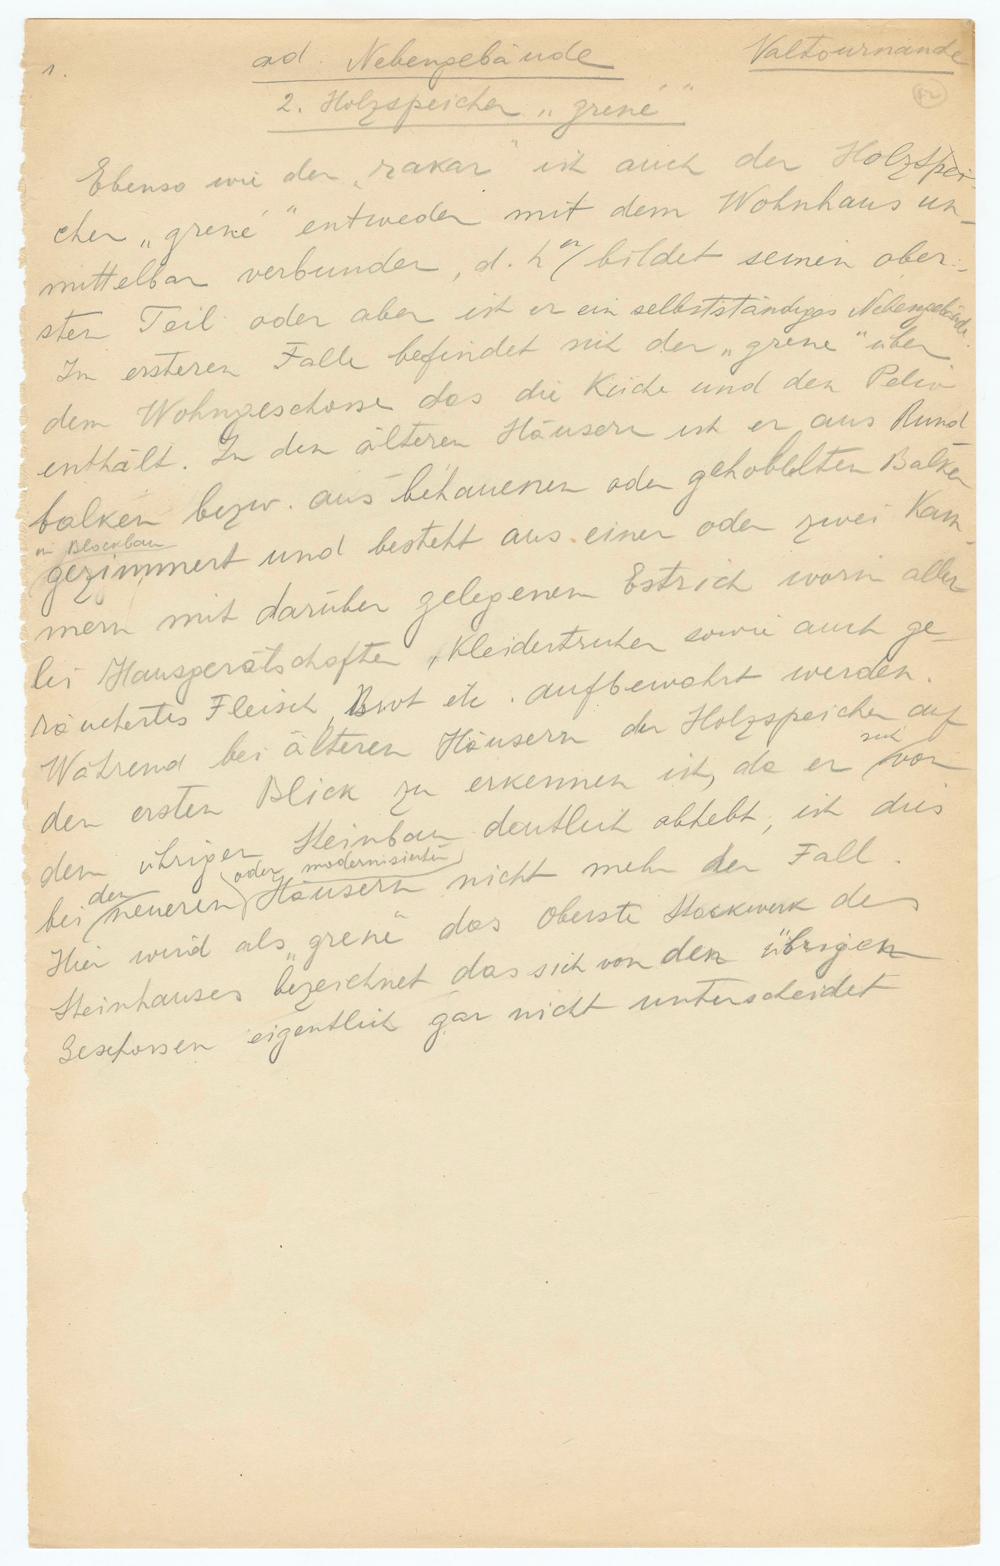 1. ad. Nebengebäude Valtournanche
2. Holzspeicher „grenè"
Ebenso wie der „rakar" ist auch der Holzspei-
cher „grenè" entweder mit dem Wohnhaus un-
mittelbar verbunden, d. h. er bildet seinen ober-
sten Teil oder aber ist er ein selbstständiges Nebengebäude.
In ersteren Falle befindet sich der „grenè" über
dem Wohngeschosse das die Küche und den Pelio
enthält. In den älteren Häusern ist er aus Rund
balken bezw. aus behauenen oder gehobelten Balken
in Blockbau
gezimmert und besteht aus einer oder zwei Kam-
mern mit darüber gelegenem Estrich worin aller
lei Hausgerätschaften, Kleidertruhen sowie auch ge-
räuchertes Fleisch, Brot etc. aufbewahrt werden.
Während bei älteren Häusern der Holzspeicher auf
den ersten Blick zu erkennen ist, da er sich von
dem übrigen Steinbau deutlich abhebt, ist dies
bei den neueren (oder modernisierten) Häusern nicht mehr der Fall.
Hier wird als „grenè" das oberste Stockwerk des
Steinhauses bezeichnet das sich von den übrigen
Geschossen eigentlich gar nicht unterscheidet